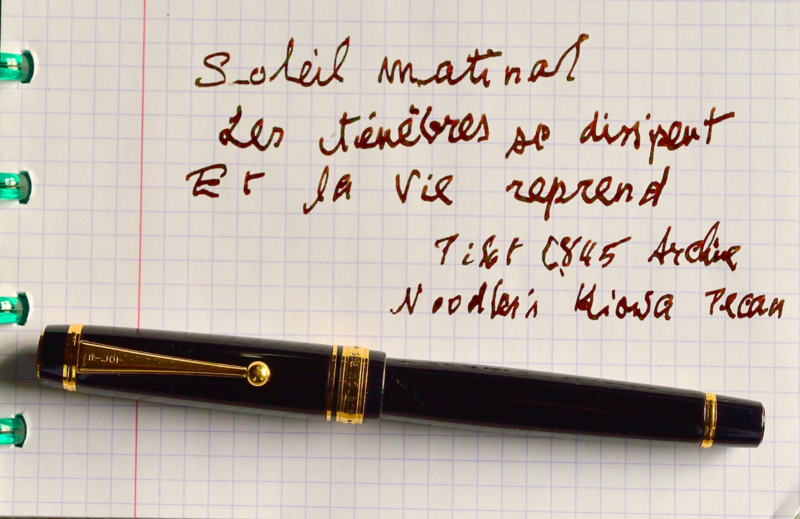 Soleil matinal
Les ténèbres se dissipent
Et la vie reprend
Pilot 845 Archive
Noodler's Kiowa Pecan